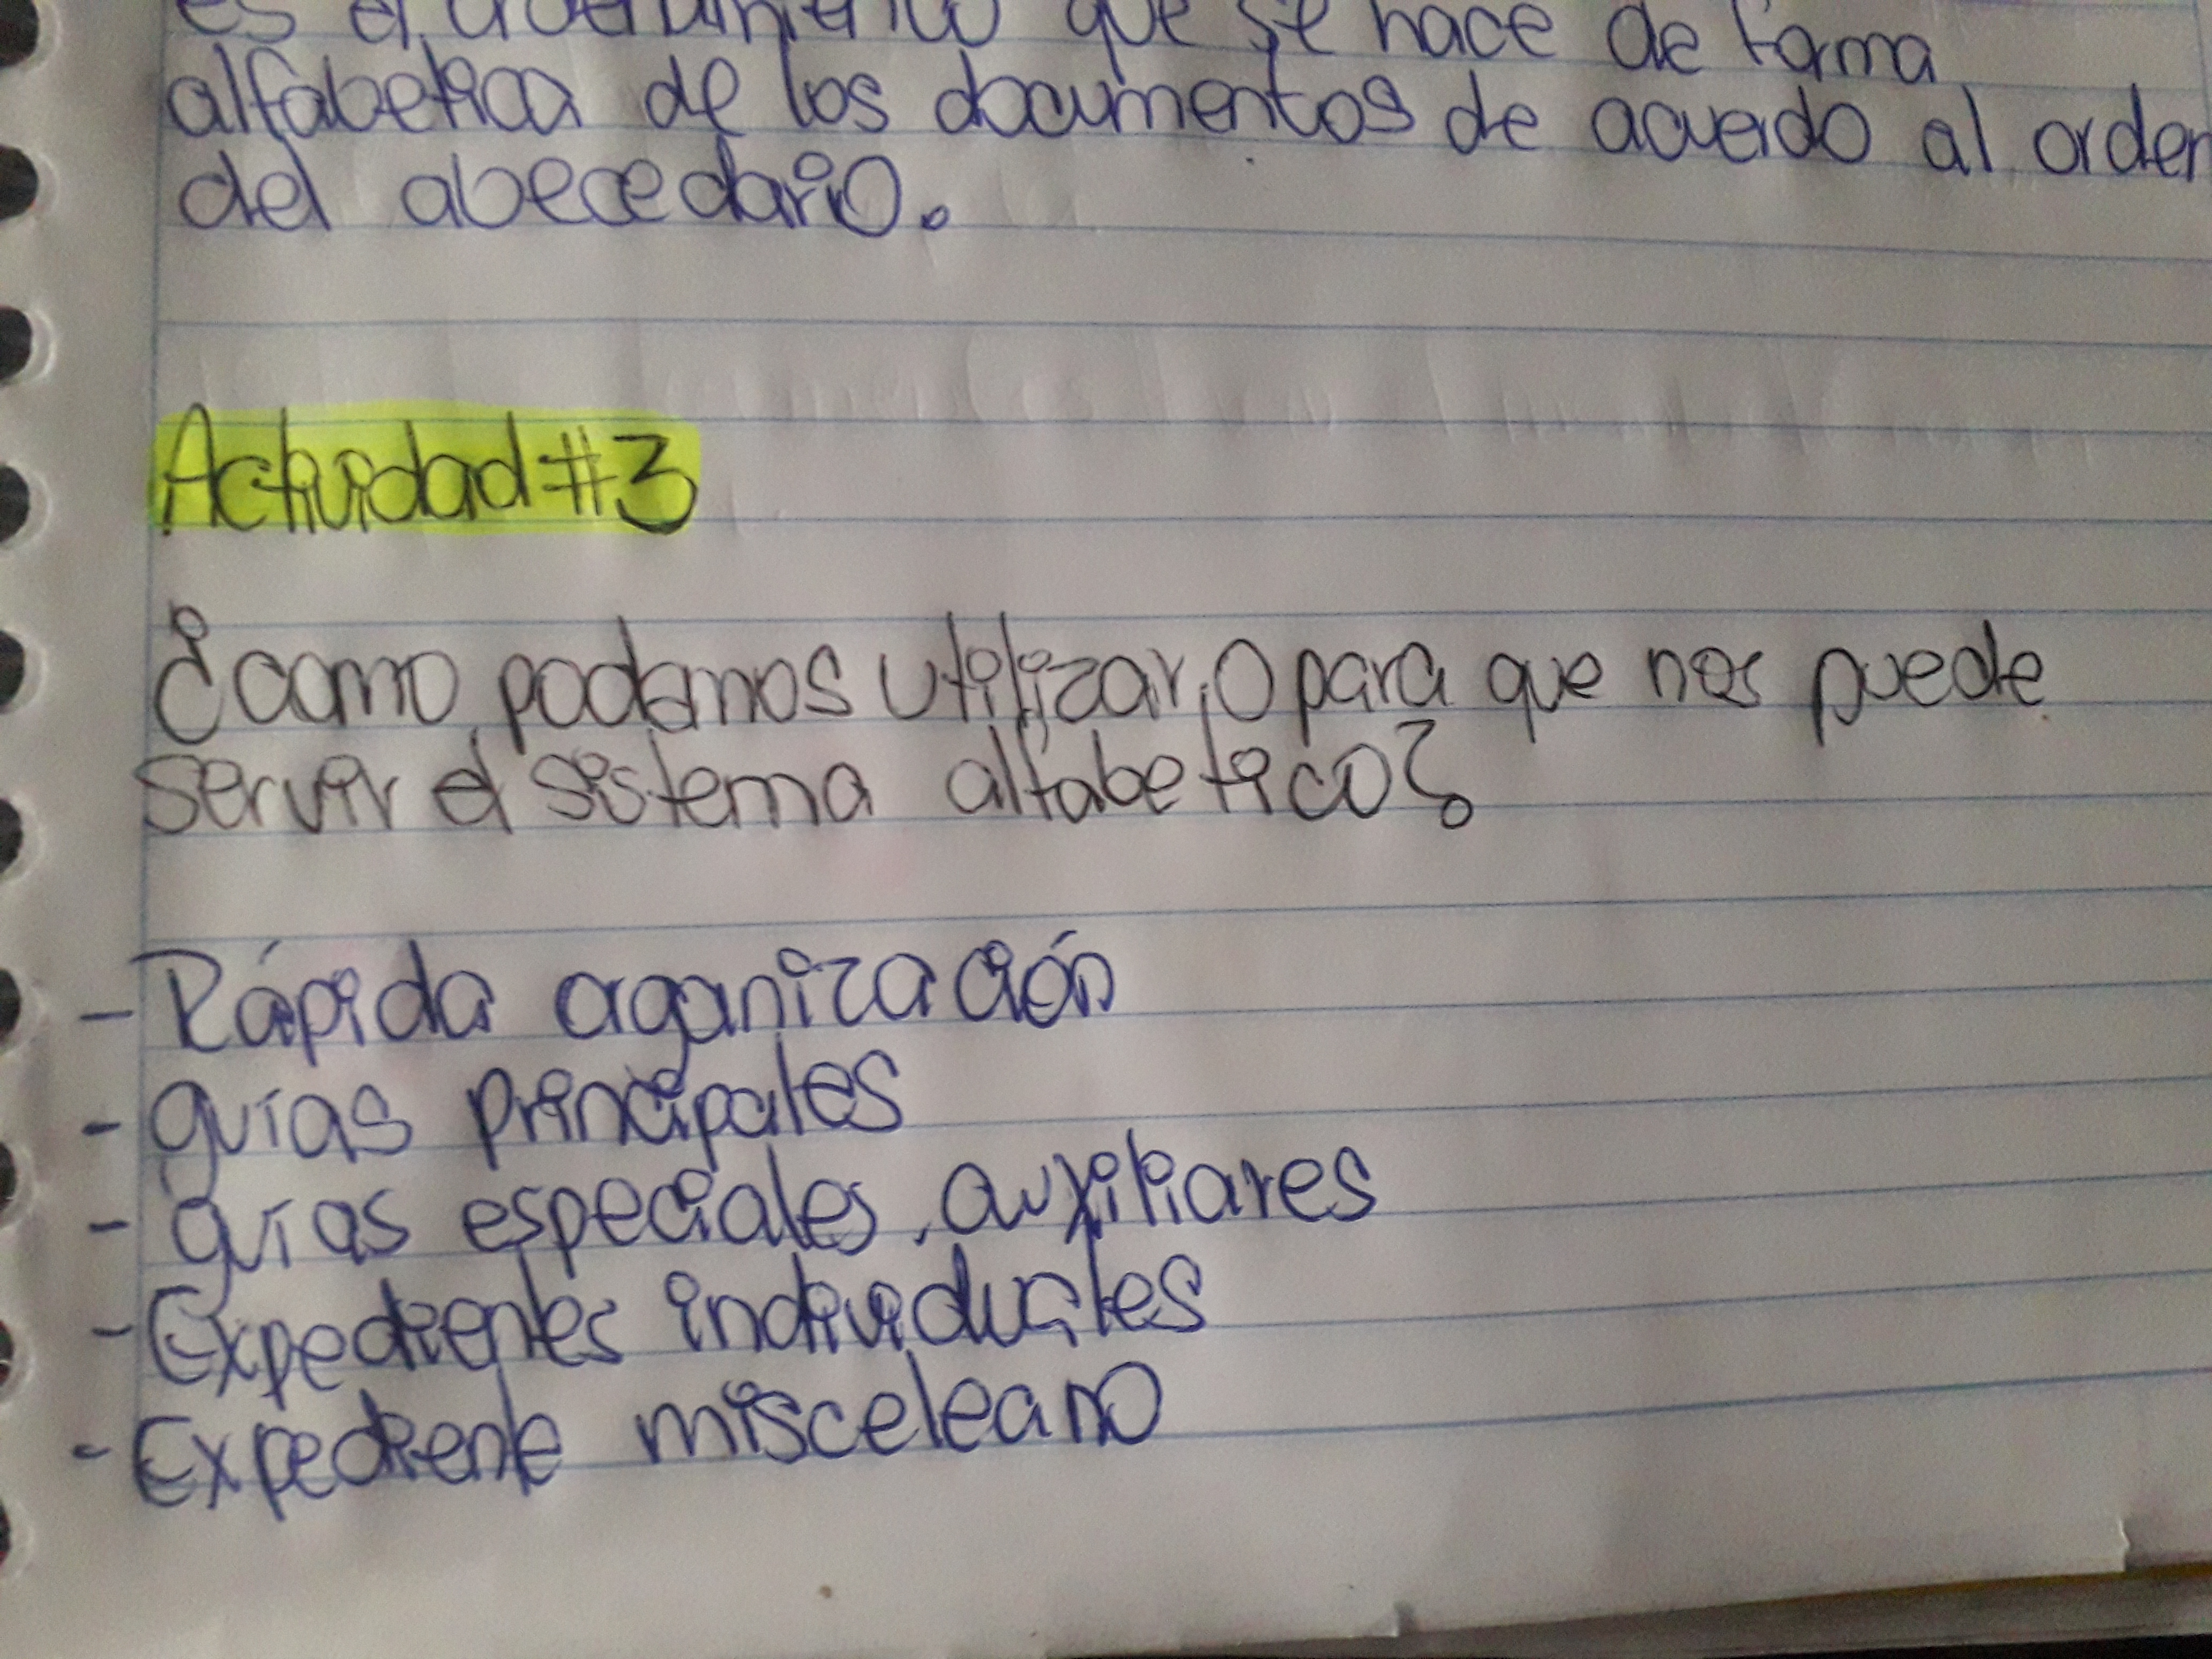 es el ordenamiento que se hace de forma
alfabetica de los documentos de acuerdo al orden
del abecedario.
Actividad #3
¿como podemos utilizar, o para que nos puede
servir el sistema alfabetico?
- Rápida organización
- guías principales
- guías especiales, auxiliares
- Expedientes individuales
- Expediente misceleano